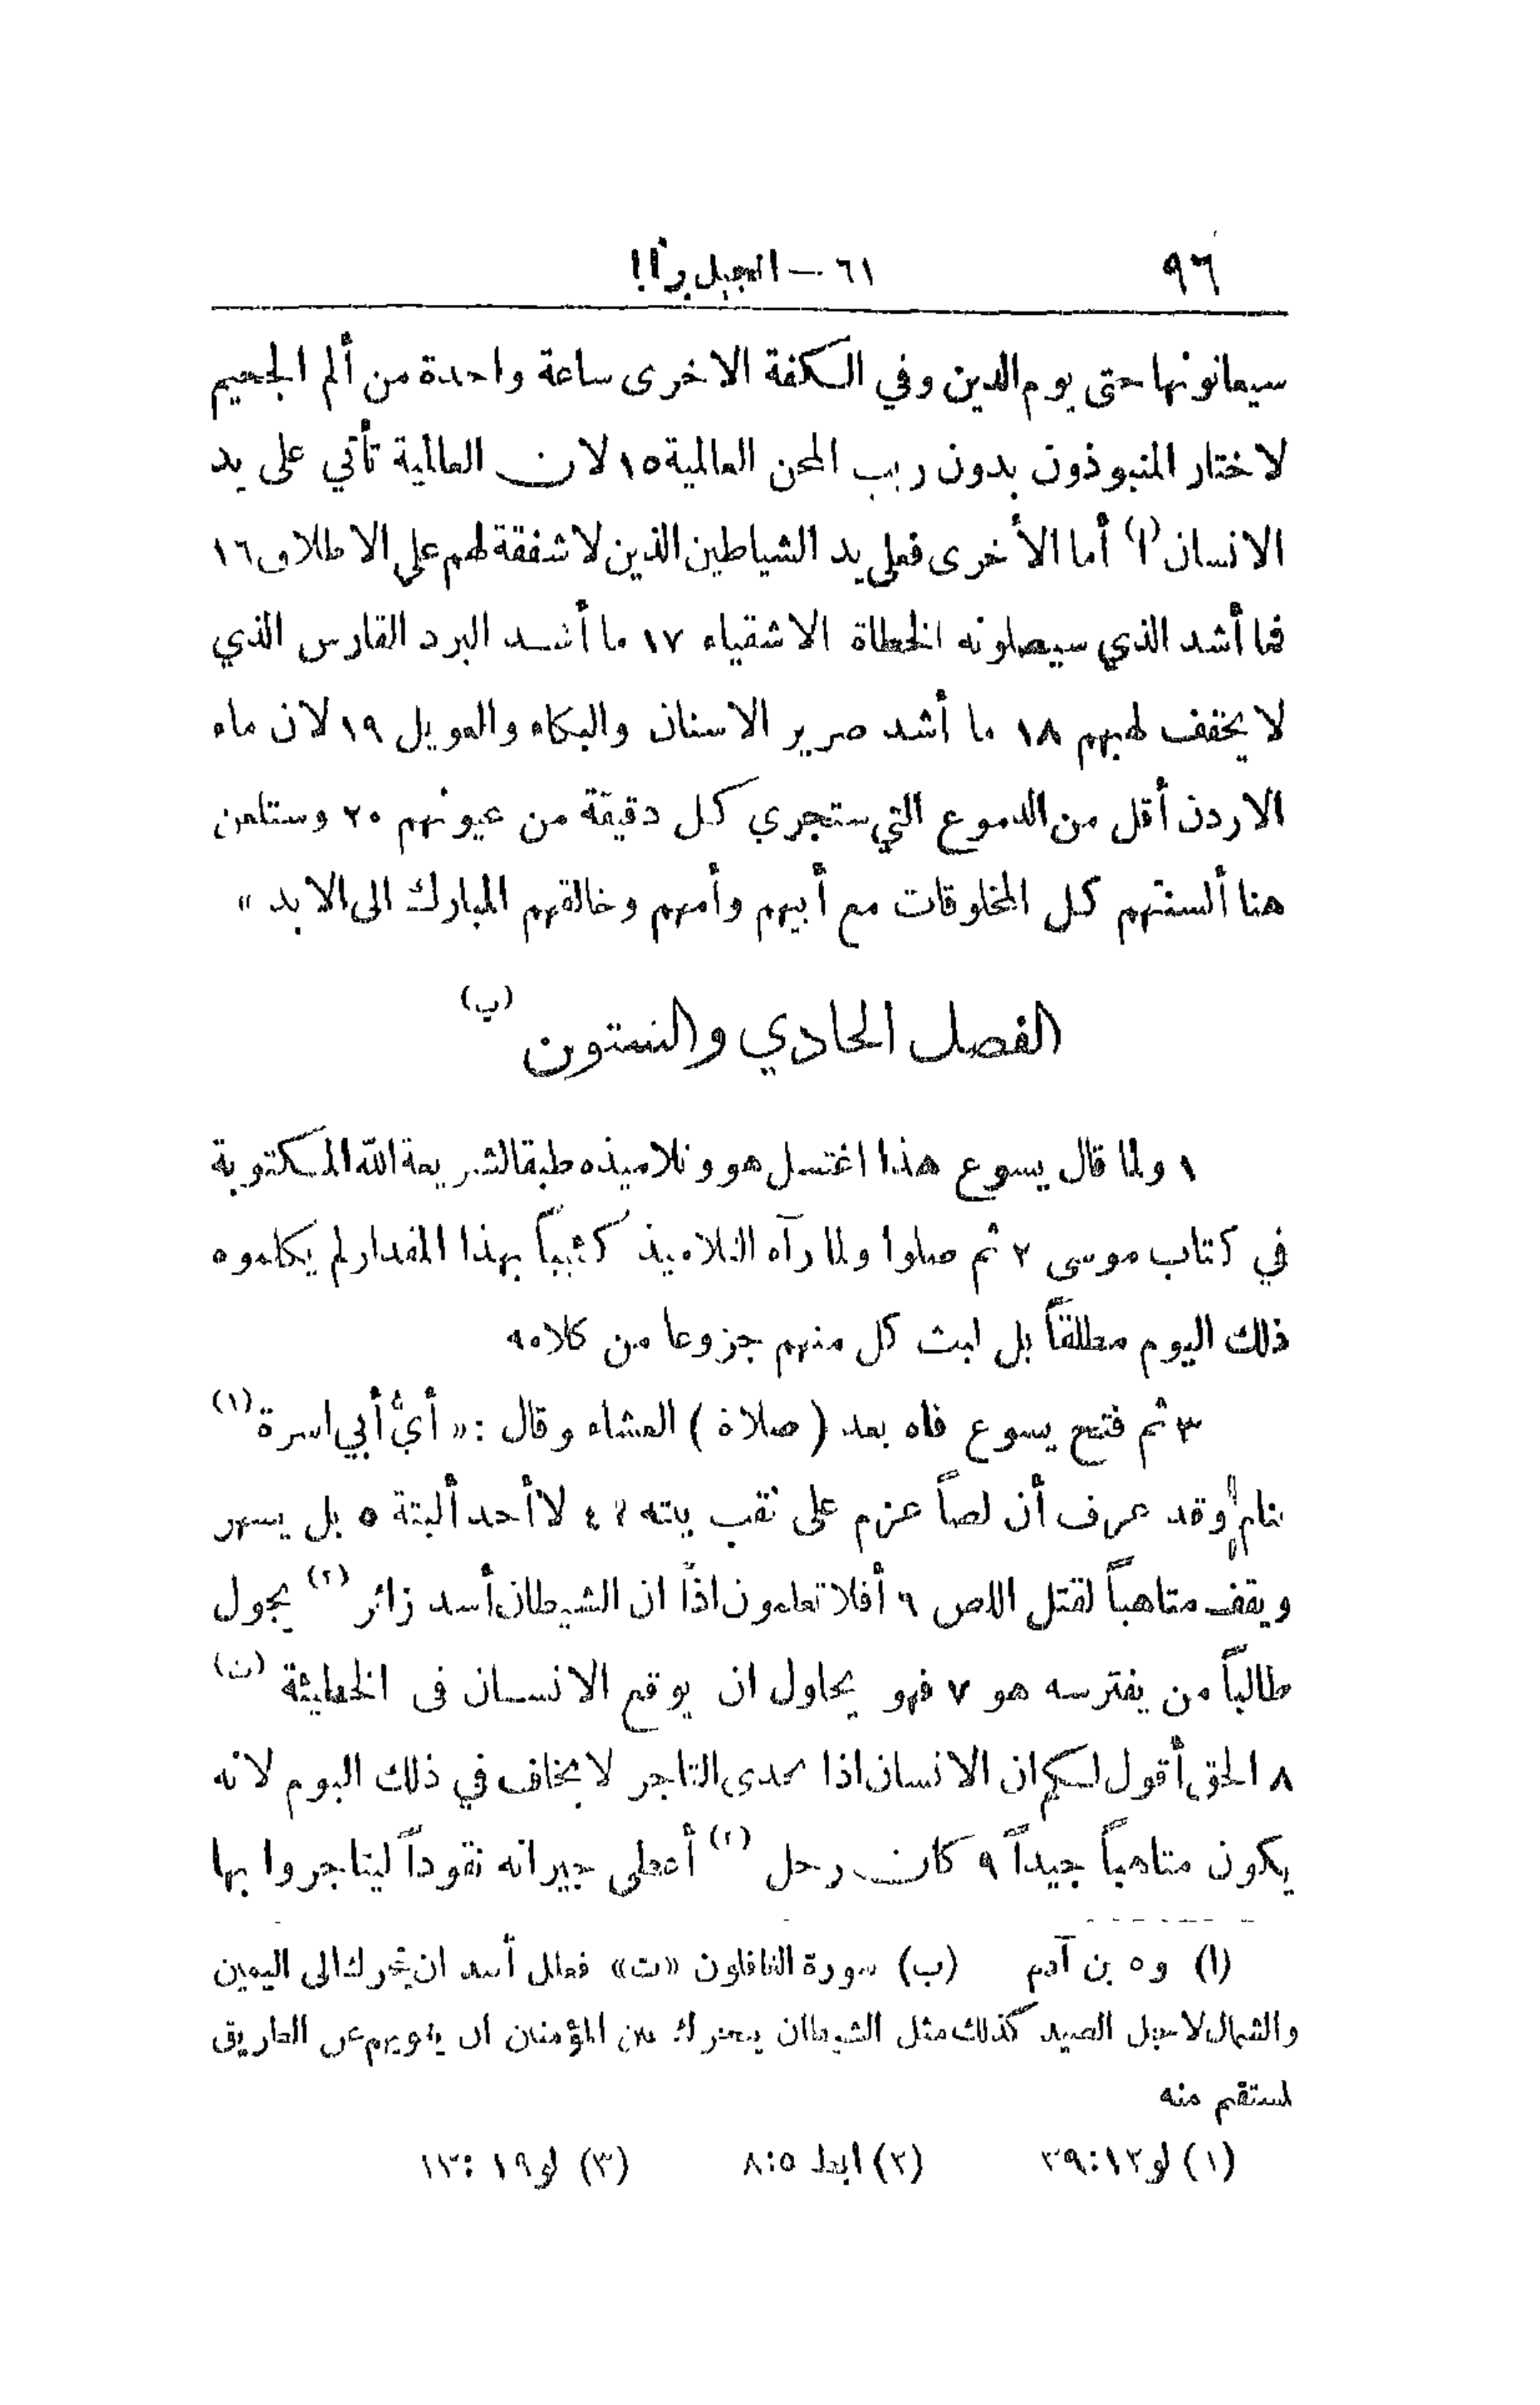 ٩٦
٦١ – انجيل برنابا
سيعانونها حتى يوم الدين وفي الكفة الاخرى ساعة واحدة من ألم الجحيم
لاختار المنبوذون بدون ريب المحن العالمية ١٥ لان العالمية تأتي على يد
الانسان (ا) أما الأخرى فعلى يد الشياطين الذين لا شفقة لهم على الاطلاق ١٦
فما أشد الذي سيصلونه الخطاة الاشقياء ١٧ ما أشد البرد القارس الذي
لا يخفف لهبهم ١٨ ما أشد صرير الاسنان والبكاء والعويل ١٩ لان ماء
الاردن أقل من الدموع التي ستجري كل دقيقة من عيونهم ٢٠ وستلعن
هنا ألسنتهم كل المخلوقات مع أبيهم وأمهم وخالقهم المبارك الى الابد »
الفصل الحادي والستون (ب)
١ ولما قال يسوع هذا اغتسل هو وتلاميذه طبقا لشريعة الله المكتوبة
في كتاب موسى ٢ ثم صلوا ولما رآه التلاميذ كئيباً بهذا المقدار لم يكلموه
ذلك اليوم مطلقاً بل لبث كل منهم جزوعا من كلامه
٣ ثم فتح يسوع فاه بعد ( صلاة ) العشاء وقال : « أيُّ أبي اسرة (١)
ينام وقد عرف أن لصاً عزم على نقب بيته ؟ ٤ لا أحد ألبتة ٥ بل يسهر
ويقف متاهباً لقتل اللص ٦ أفلا تعلمون اذاً ان الشيطان أسد زائر (٢) يجول
طالباً من يفترسه هو ٧ فهو يحاول ان يوقع الانسان في الخطيئة (ت)
٨ الحق أقول لكم ان الانسان اذا تحدى التاجر لا يخاف في ذلك اليوم لانه
يكون متاهباً جيداً ٩ كان رجل (٢) أعطى جيرانه نقوداً ليتاجروا بها
(ا) بن آدم (ب) سورة الغافلون «ت» أسد ان الى اليمين
والشمال لاجل الصيد كذلك مثل الشيطان يتحرك بين المؤمنين ان يغويهم عن الطريق
منه
(١) لو ١٢:٣٩ (٢) ابط ٨:٥ (٣) لو ١٩:١٣